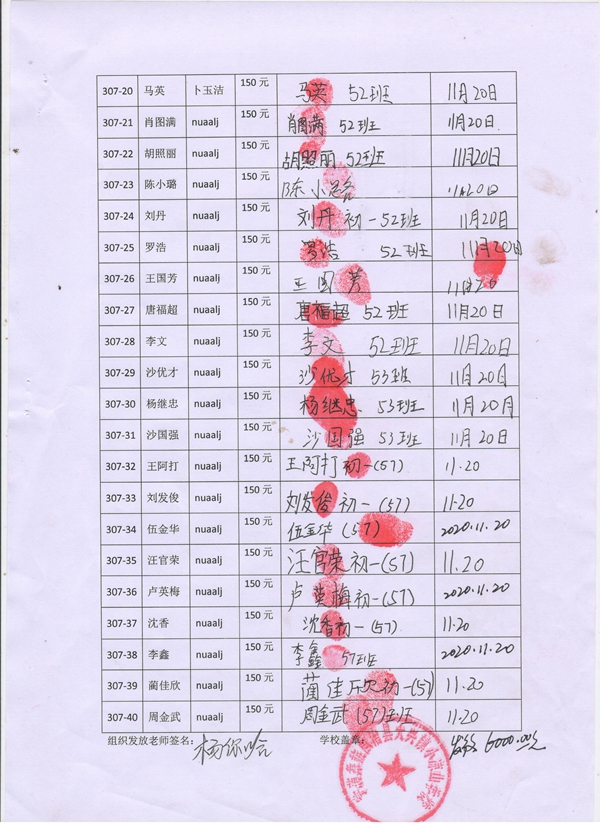 307-20 马英 卜玉洁 150元 马英 52班 11月20日
307-21 肖图满 nuaalj 150元 肖图满 52班 11月20日.
307-22 胡照丽 nuaalj 150元 胡照丽 52班 11月20日
307-23 陈小璐 nuaalj 150元 陈小 11月20日
307-24 刘丹 nuaalj 150元 刘丹 初一52班 11月20日
307-25 罗浩 nuaalj 150元 罗浩 52班 11月20日
307-26 王国芳 nuaalj 150元 王国芳
307-27 唐福超 nuaalj 150元 唐福超 52班 11月20日
307-28 李文 nuaalj 150元 李文 52班 11月20日
307-29 沙优才 nuaalj 150元 沙优才 53班 11月20日
307-30 杨继忠 nuaalj 150元 杨继忠 53班 11月20月
307-31 沙国强 nuaalj 150元 沙国强 53班 11月20日
307-32 王阿打 nuaalj 150元 王阿打初一(57) 11.20
307-33 刘发俊 nuaalj 150元 刘发俊初一(57) 11.20
307-34 伍金华 nuaalj 150元 伍金华(57) 2020.11.20
307-35 汪官荣 nuaalj 150元 汪官荣初一(57) 11.20
307-36 卢英梅 nuaalj 150元 卢英梅初一(57) 2020.11.20
307-37 沈香 nuaalj 150元 沈香初一(57) 11.20
307-38 李鑫 nuaalj 150元 李鑫 57班 2020.11.20
307-39 蔺佳欣 nuaalj 150元 蔺佳欣初一(57) 11.20
307-40 周金武 nuaalj 150元 周金武(57)班 11.20
组织发放老师签名: 杨你哈 学校盖章: 6000.00元